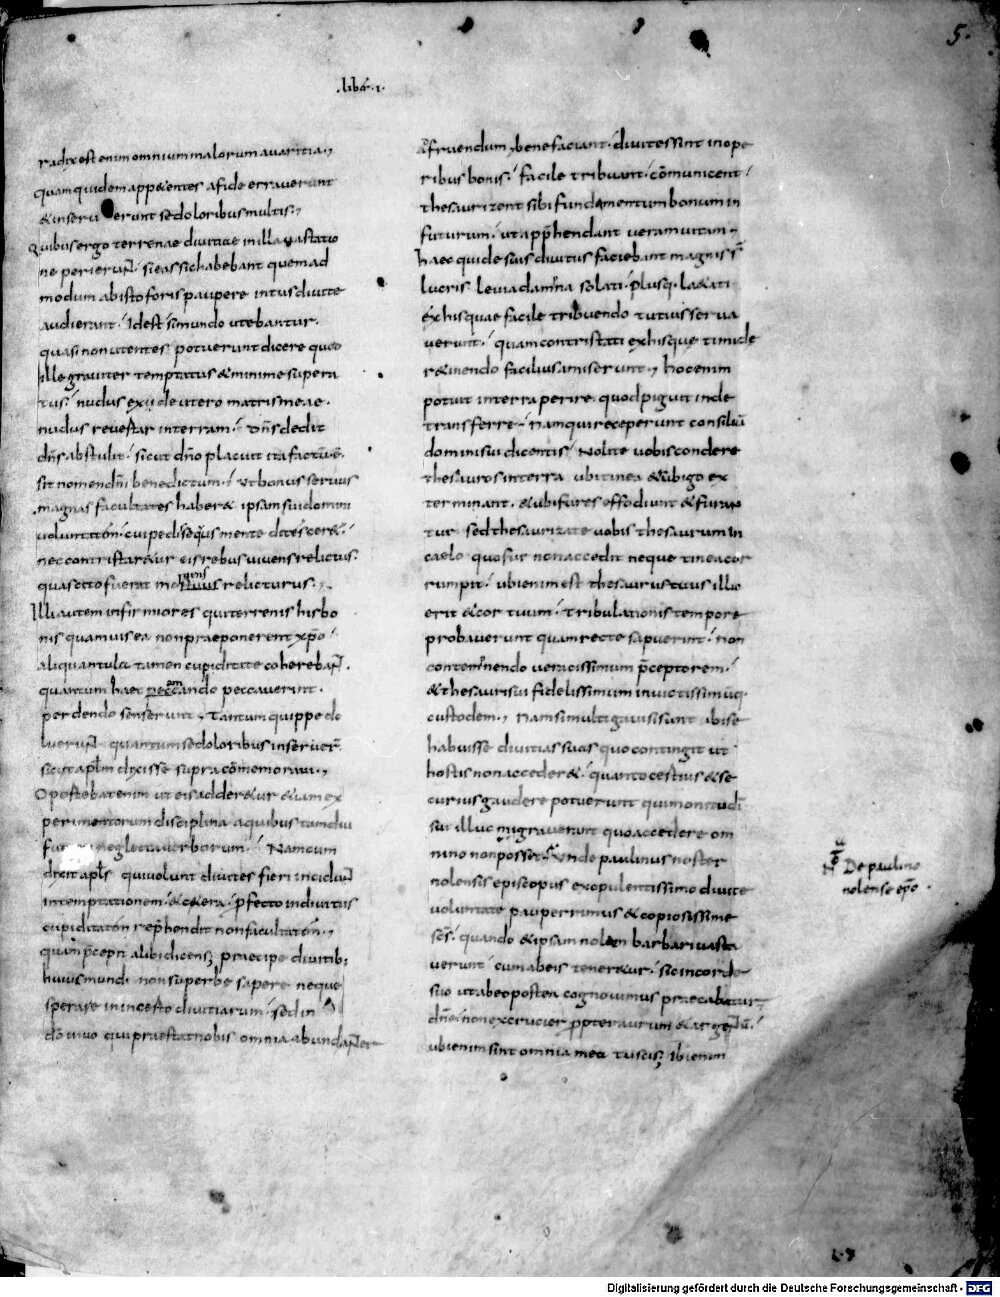 5.
.liber.i.
radix est enim omnium malorum avaritia.,
quam quidem app&entes a fide erraverunt
& inseruerunt se doloribus multis.,
Quibus ergo terrenae divitiae in illa vastatio
ne perierunt̄. si eas sic habebant quemad
modum ab isto foris paupere intus divite
audierant. idest si mundo utebantur.
quasi non utentes. potuerunt dicere quod
ille graviter temptatus & minime supera
tus. nudus exii de utero matris meae.
nudus revertar in terram. dn̄s dedit
dn̄s abstulit. sicut dn̄o placuit ita factū ē.
sit nomen dn̄i benedictum. ut bonus servus
magnas facultates haber& ipsam sui domini
voluntatem. cui pedisequus mente ditesceret.
nec contristar&ur eis rebus vivens relictus.
quas cito fuerat moriens relicturus.,
Illi autem infirmiores qui terrenis his bo
nis quamvis ea non praeponerent xp̄o
aliquantula tamen cupiditate coherebant̄.
quantum haec amando peccaverint.
perdendo senserunt. Tantum quippe do
luerunt̄ quantum se doloribus inseruer̄.
sicut apl̄m dixisse supra cōmemoravi.,
Oportebat enim ut eis adder&ur &iam ex
perimentorum disciplina a quibus tam diu
neglecta verborum. Nam cum
dixit apl̄s qui volunt divites fieri incidunt̄
in temptationem. & c&era. p̄fecto in divitiis
cupiditatem rep̄hendit non facultatem.,
quam p̄cepit alibi dicens; praecipe divitib;
huius mundi non superbe sapere neque
sperare in incerto divitiarum. sed in
dō vivo qui praestat nobis omnia abundanter
ad fruendum, bene faciant. divites sint in ope
ribus bonis. facile tribuant. cōmunicent.
thesaurizent sibi fundamentum bonum in
futurum. ut app̄hendant veram vitam.,
haec qui de suis divitiis faciebant magnis s̄
lucris levia damna solati. plusq. laetati
ex his quae facile tribuendo tutius serva
verunt. quam contristati ex his que timide
r&inendo facilius amiserunt., hoc enim
potuit in terra perire. quod piguit inde
transferre. Nam qui receperunt consiliū
domini sui dicentis. Nolite vobis condere
thesauros in terra ubi tinea & erubigo ex
terminant. & ubi fures effodiunt & furan
tur sed thesaurizate vobis thesaurum in
caelo quo fur non accedit neque tinea cor
rumpit. ubi enim est thesaurus tuus illic
erit & cor tuum. tribulationis tempore
probaverunt quam recte sapuerint. non
contemnendo veracissimum p̄ceptorem.
& thesauri sui fidelissimum invictissimūq.
custodem., Nam si multi gavisi sunt ibi se
habuisse divitias suas quo contingit ut
hostis non acceder&. quanto certius & se
curius gaudere potuerunt qui monitu dī
sui illuc migraverunt quo accedere om
nino non posset. Unde paulinus noster
nolensis episcopus ex opulentissimo divite
voluntate pauperrimus & copiosissime
scs̄. quando & ipsam nolam barbari vasta
verunt cum ab eis tener&ur. sic in corde
suo ut ab eo postea cognovimus praecabatur
dn̄e. non excrucier p̄pter aurum & argentū.
ubi enim sint omnia mea tu scis; ibi enim
De paulino
nolense ep̄o.
Digitalisierung gefördert durch die Deutsche Forschungsgemeinschaft - DFG